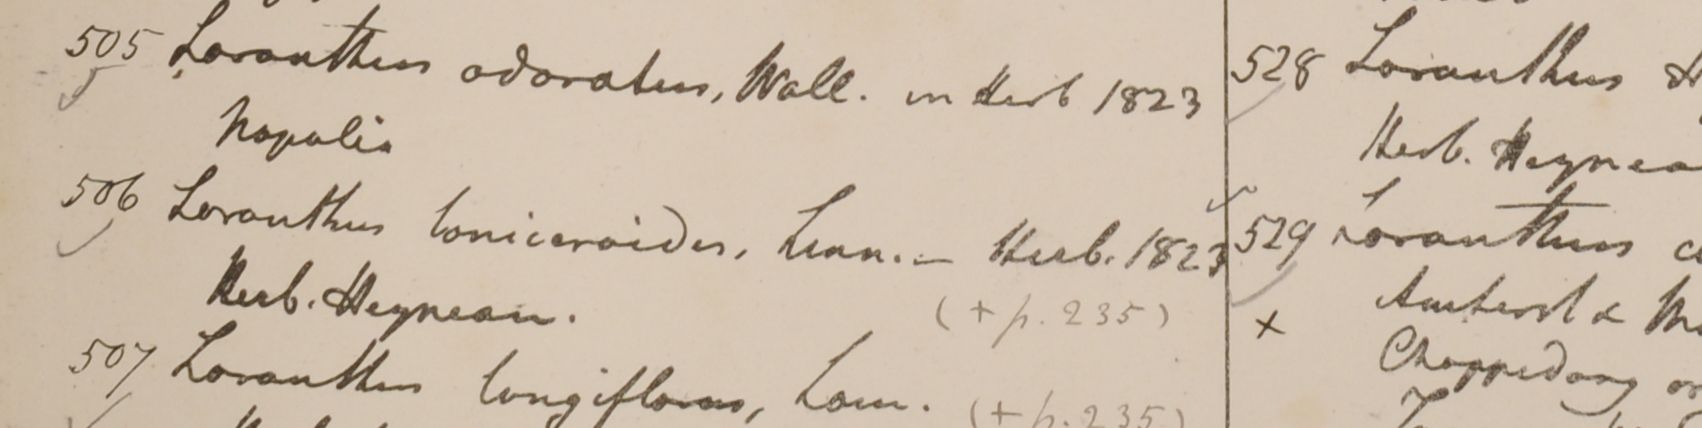 505 Loranthus odoratus, Wall. in Herb 1823
Napalia
506 Loranthus loniceroides, Linn. – Herb. 1823
Herb. Heynean.
(+ p. 235)
507 Loranthus longiflorus, Lam. (+ p. 235)
528 Loranthus H
Herb. Heynea
529 Loranthus
Amherst & M
x
Chappedong or